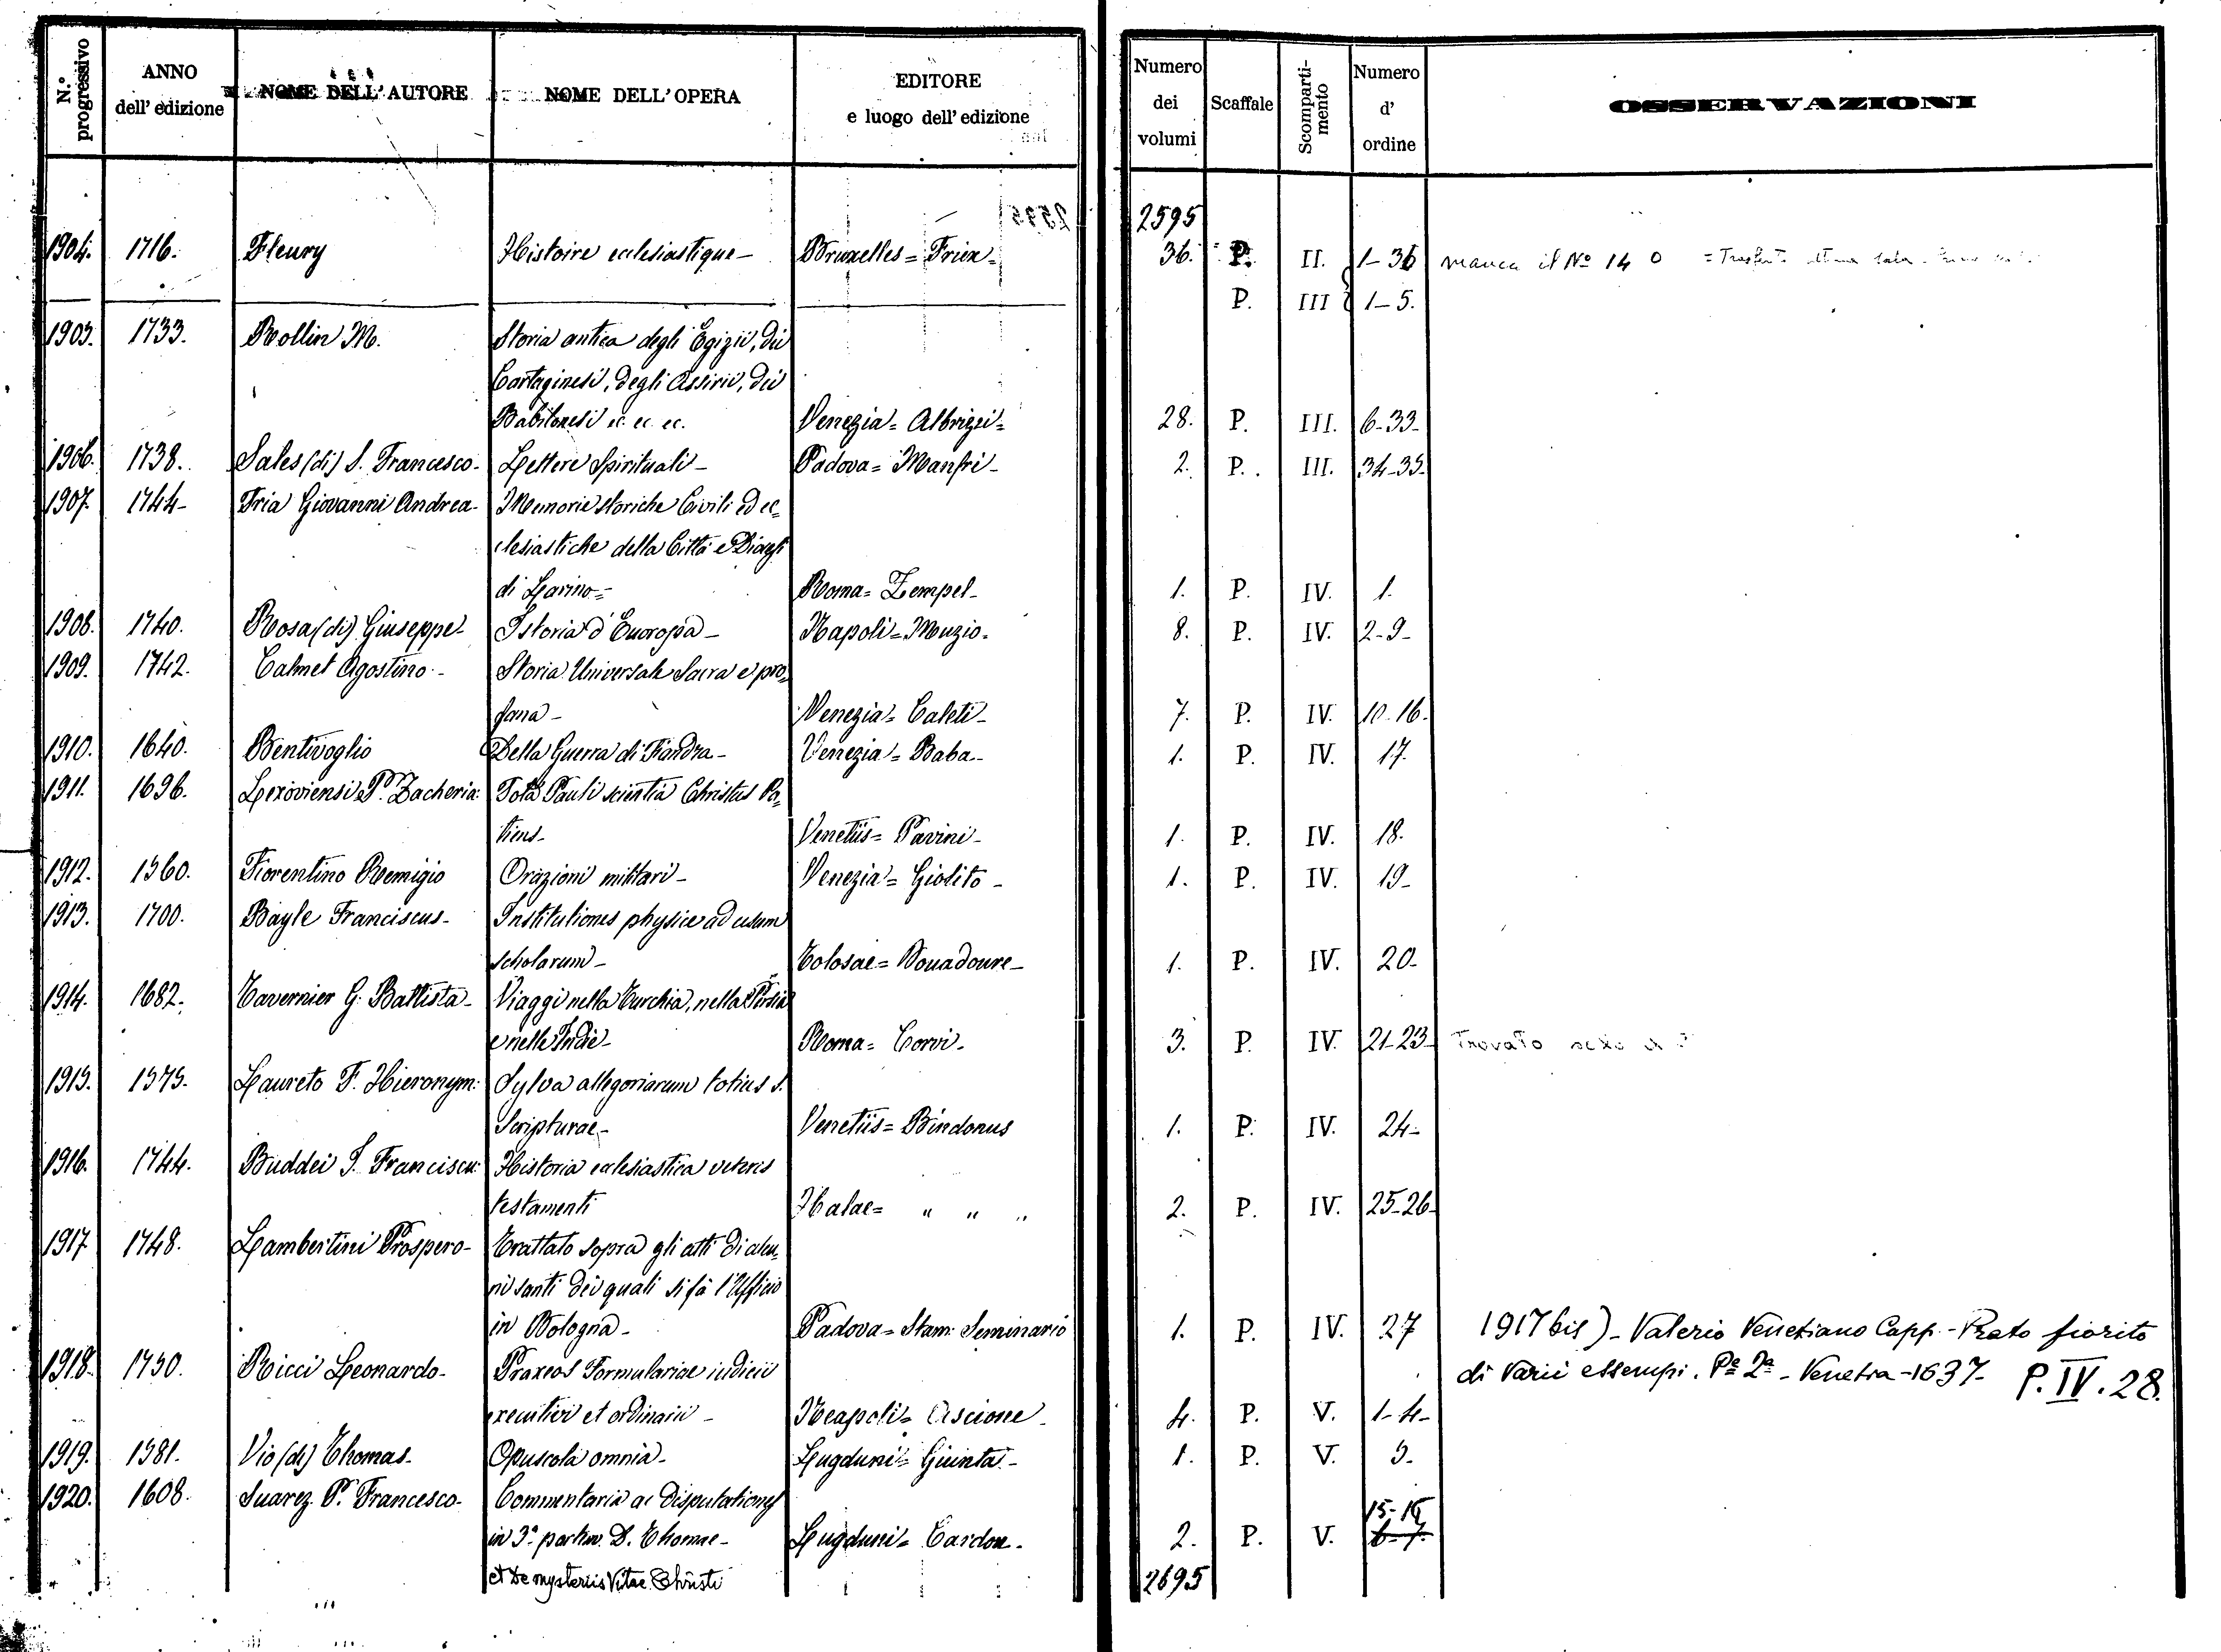 N.º progressivo
ANNO dell' edizione
NOME DELL' AUTORE
NOME DELL' OPERA
EDITORE e luogo dell' edizione
Numero dei volumi
Scaffale
Scomparti-mento
Numero d' ordine
OSSERVAZIONI
2595
1904. 1716. Fleury Histoire ecclesiastique - Bruxelles = Friex = 36. P. II. 1-36 manca il Nº 14
P. III 1-5.
1905. 1733. Rollin M. Storia antica degli Egizii, dei
Cartaginesi, degli Assirii, dei
Babilonesi ec. ec. ec. Venezia = Albrizzi = 28. P. III. 6-33-
1906. 1738. Sales (di) S. Francesco - Lettere Spirituali - Padova = Manfrè - 2. P. III. 34-35.
1907. 1744- Tria Giovanni Andrea - Memorie storiche Civili ed ec=
clesiastiche della Città e Diocesi
di Larino = Roma = Zempel - 1. P. IV. 1.
1908. 1740. Rosa (di) Giuseppe - Istoria d' Europa - Napoli = Muzio - 8. P. IV. 2-9-
1909. 1742. Calmet Agostino - Storia Universale Sacra e pro=
fana - Venezia = Caleti - 7. P. IV. 10-16.
1910. 1640. Bentivoglio Della Guerra di Fiandra - Venezia = Baba - 1. P. IV. 17.
1911. 1696. Lexoviensi P. Zacheria: Tota Pauli scientia Christus Pa=
tiens - Venetiis = Pavini - 1. P. IV. 18.
1912. 1560. Fiorentino Remigio Orazioni militari - Venezia = Giolito - 1. P. IV. 19-
1913. 1700. Bayle Franciscus - Institutiones physicæ ad usum
scholarum - Tolosae = Douadoure - 1. P. IV. 20-
1914. 1682. Tavernier G. Battista - Viaggi nella Turchia, nella Persia
e nelle Indie - Roma = Corvi - 3. P. IV. 21-23- Trovato
1915. 1575. Laureto F. Hieronym: Sylva allegoriarum totius S.
Scripturae - Venetiis = Bindonus 1. P. IV. 24-
1916. 1744. Buddei J. Franciscu: Historia ecclesiastica veteris
testamenti Halae = " " " 2. P. IV. 25-26-
1917 1748. Lambertini Prospero - Trattato sopra gli atti di alcu=
ni santi dei quali si fà l'Ufficio
in Bologna - Padova = Stam: Seminario 1. P. IV. 27 1917 bis) - Valerio Venetiano Capp. - Prato fiorito
di varii essempi. Pe 2a - Venetia - 1637- P. IV. 28.
1918. 1750. Ricci Leonardo - Praxeos Formulariae iudicii
executivi et ordinarii - Neapoli = Ascione - 4. P. V. 1-4-
1919. 1581. Vio (de) Thomas - Opuscola omnia - Lugduni = Giunta - 1. P. V. 5-
1920. 1608. Suarez P. Francesco - Commentaria ac disputationes 15-16
in 3ª partem D. Thomae - Lugduni = Cardon - 2. P. V. 6-7.
et De mysteriis Vitae Christi 2695